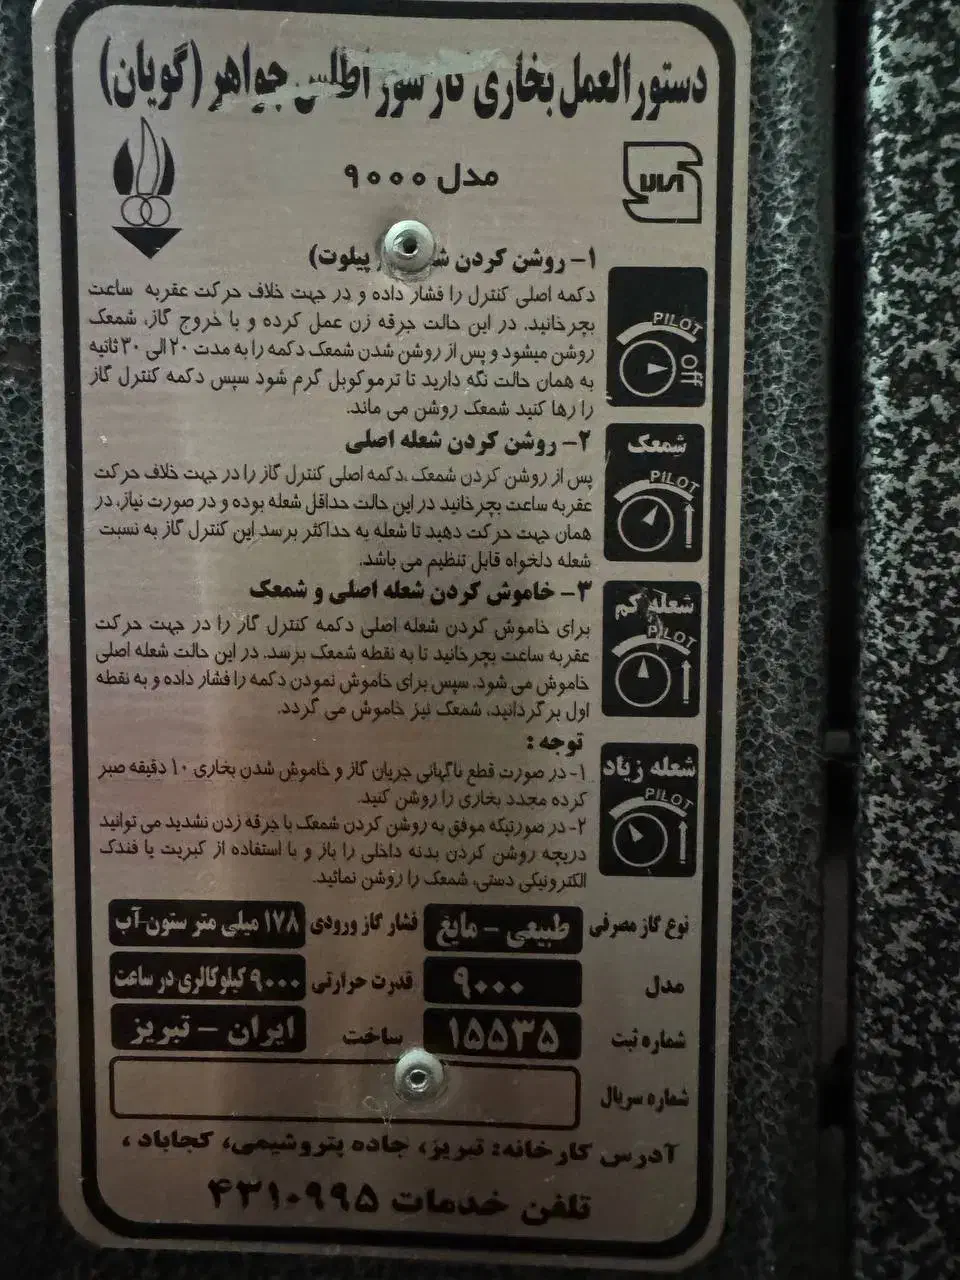 دستورالعمل بخاری گاز سوز اطلس جواهر (گویان)
مدل ۹۰۰۰
۱- روشن کردن پیلوت)
دکمه اصلی کنترل را فشار داده و در جهت خلاف حرکت عقربه ساعت
بچرخانید. در این حالت جرقه زن عمل کرده و با خروج گاز، شمعک
روشن میشود و پس از روشن شدن شمعک دکمه را به مدت ۲۰ الی ۳۰ ثانیه
به همان حالت نگه دارید تا ترموکوبل گرم شود سپس دکمه کنترل گاز
را رها کنید شمعک روشن می ماند.
PILOT
Off
۲- روشن کردن شعله اصلی
پس از روشن کردن شمعک، دکمه اصلی کنترل گاز را در جهت خلاف حرکت
عقربه ساعت بچرخانید در این حالت حداقل شعله بوده و در صورت نیاز، در
همان جهت حرکت دهید تا شعله به حداکثر برسد این کنترل گاز به نسبت
شعله دلخواه قابل تنظیم می باشد.
شمعک
PILOT
۳- خاموش کردن شعله اصلی و شمعک
برای خاموش کردن شعله اصلی دکمه کنترل گاز را در جهت حرکت
عقربه ساعت بچرخانید تا به نقطه شمعک برسد. در این حالت شعله اصلی
خاموش می شود. سپس برای خاموش نمودن دکمه را فشار داده و به نقطه
اول برگردانید، شمعک نیز خاموش می گردد.
شعله کم
PILOT
توجه :
۱- در صورت قطع ناگهانی جریان گاز و خاموش شدن بخاری ۱۰ دقیقه صبر
کرده مجدد بخاری را روشن کنید.
۲- در صورتیکه موفق به روشن کردن شمعک با جرقه زدن نشدید می توانید
دریچه روشن کردن بدنه داخلی را باز و با استفاده از کبریت یا فندک
الکترونیکی دستی، شمعک را روشن نمائید.
شعله زیاد
PILOT
نوع گاز مصرفی طبیعی - مایع فشار گاز ورودی ۱۷۸ میلی متر ستون آب
مدل ۹۰۰۰ قدرت حرارتی ۹۰۰۰ کیلوکالری در ساعت
شماره ثبت ۱۵۵۳۵ ساخت ایران - تبریز
شماره سریال
آدرس کارخانه: تبریز، جاده پتروشیمی، کجاباد ،
تلفن خدمات ۴۳۱۰۹۹۵